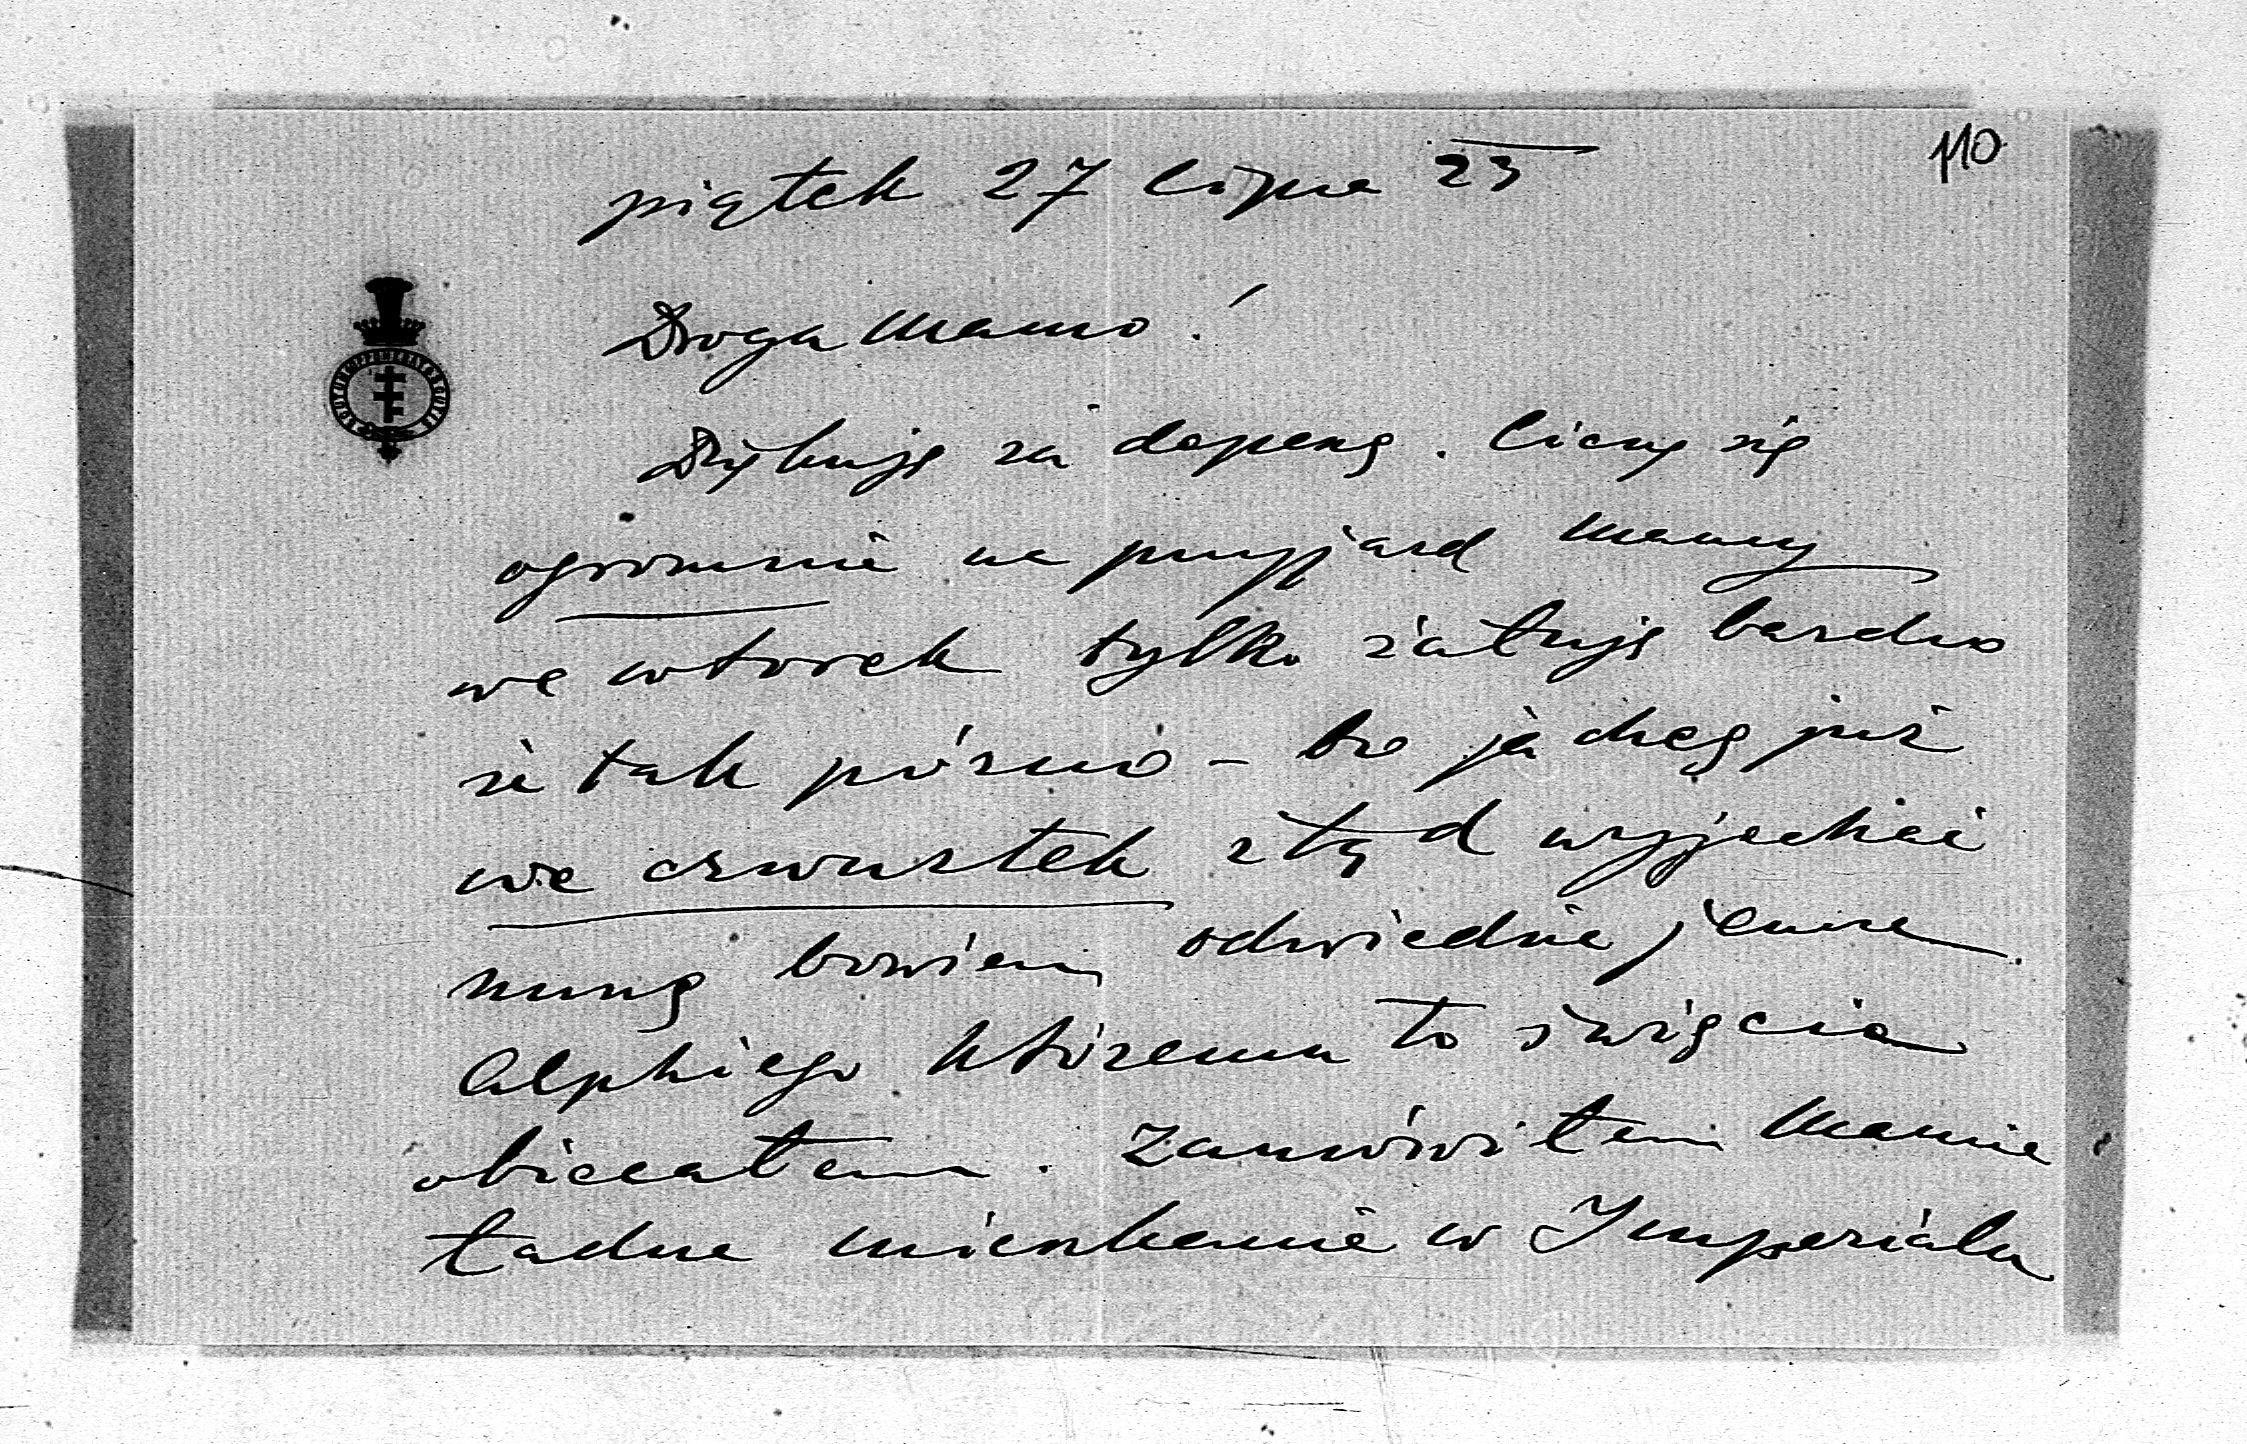 110
piątek 27 lipca 23
Droga Mamo!
Dziękuję za depeszę. Liczę się
ogromnie na przyjazd Mamy
we wtorek tylko żałuję bardzo
że tak późno – bo ja chcę już
we czwartek ztąd wyjechać
muszę bowiem odwiedzić jeszcze
Alphiego któremu to święcie
obiecałem. Zamówiłem Mamie
ładne mieszkanie w Imperialu